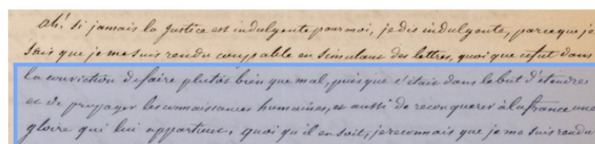 Ah! si jamais la justice est indulgente pour moi, je dis indulgente, parceque je
sais que je me suis rendu coupable en simulant des lettres, quoique ce fut dans
la conviction de faire plutôt bien que mal, puisque c'était dans le but d'étendre
et de propager les connaissances humaines, et aussi de reconquerer à la france une
gloire qui lui appartient, quoi qu'il en soit, je reconnais que je me suis rendu